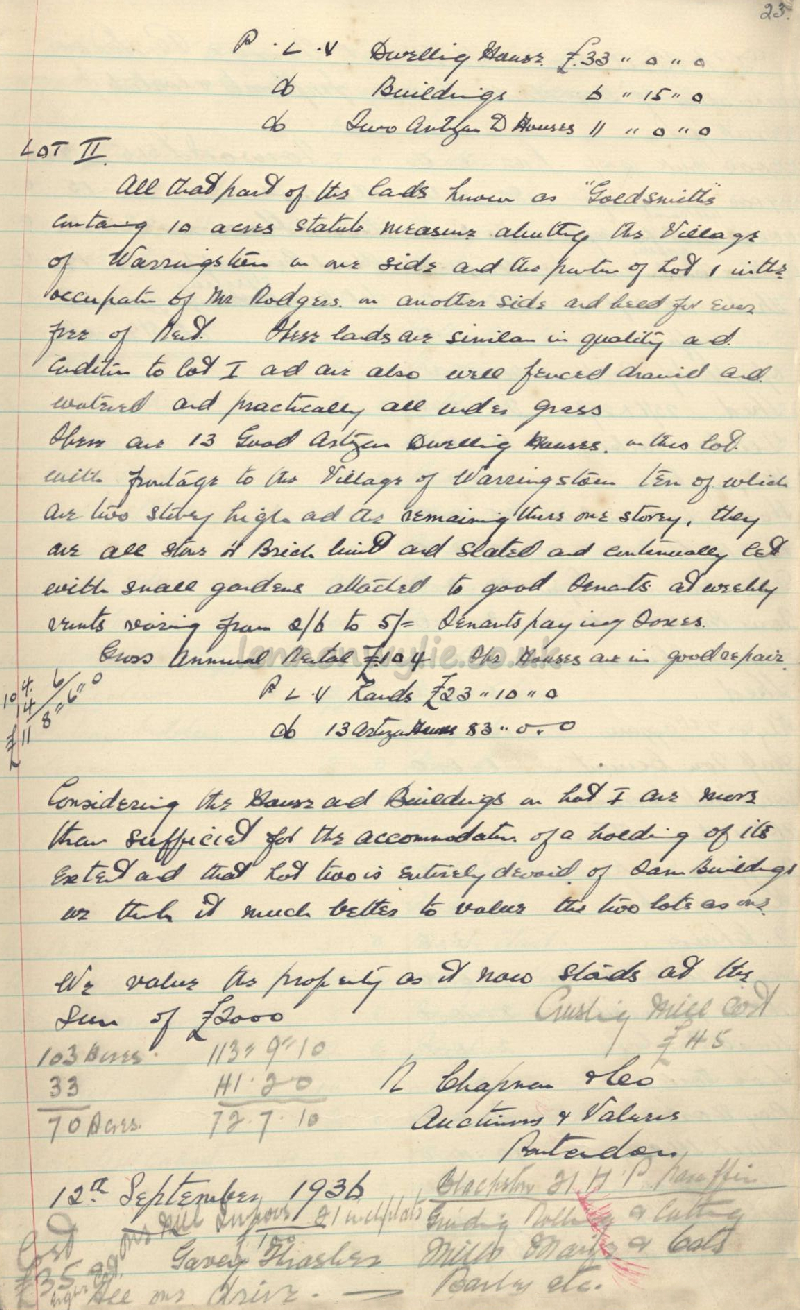 23.
P. L. V Dwelling House £33 " 0 " 0
do Buildings 6 " 15 " 0
do Two Artizan D Houses 11 " 0 " 0
LOT II.
All that part of the lands known as "Goldsmith's"
containing 10 acres statute measure abutting the Village
of Warringstown on one side and the portion of Lot 1 in the
occupation of Mr Rodgers on another side and held for ever
free of Rent. These lands are similar in quality and
condition to Lot I and are also well fenced drained and
watered and practically all under grass
There are 13 Good Artizan Dwelling Houses, on this lot
with frontage to the Village of Warringstown ten of which
are two storey high and the remaining three one storey, they
are all stone & Brick built and slated and continually let
with small gardens attached to good Tenants at weekly
rents varing from 2/6 to 5/= Tenants paying Taxes.
Gross Annual Rental £104 The Houses are in good repair.
P L. V Lands £23 " 10 " 0
do 13 Artizan Houses 83 " 0. 0
104. 6
14/6 " 0
11 8 "
Considering the House and Buildings on Lot I are more
than sufficient for the accommodation of a holding of its
extent and that Lot two is entirely devoid of Farm Buildings
we think it much better to value the two lots as one
We value the property as it now stands at the
Sum of £2000
Crushing Mill Cost
£45
103 Acres. 113 " 9 " 10
33 41. 2. 0
70 Acres 72. 7. 10
R Chapman & Co
Auctioneers & Valuers
Portadown
12th September 1936
Blackstone 21 H. P Paraffin
Grinding Rolling & Cutting
Mills Maize & Oats
Barley etc.
Cost
£35
Garvey Thrasher
all one drive. —